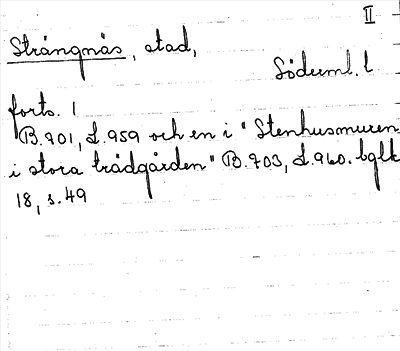 II
Strängnäs, stad,
Söderml. l
forts. 1
B. 901, L. 959 och en i "Stenhusmuren
i stora trädgården" B. 903, L. 960. bglk
18, s. 49